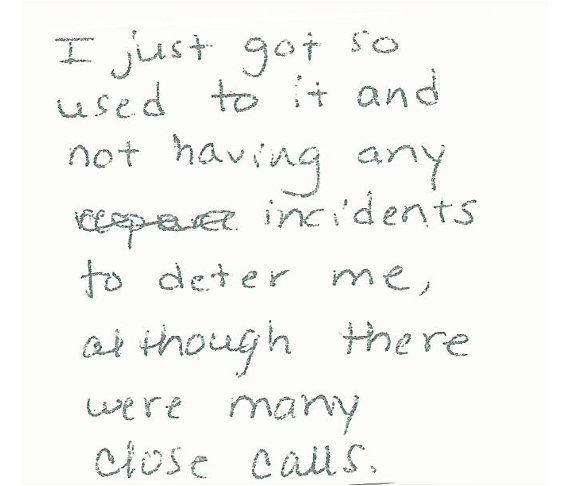 I just got so
used to it and
not having any
incidents
to deter me,
although there
were many
close calls.